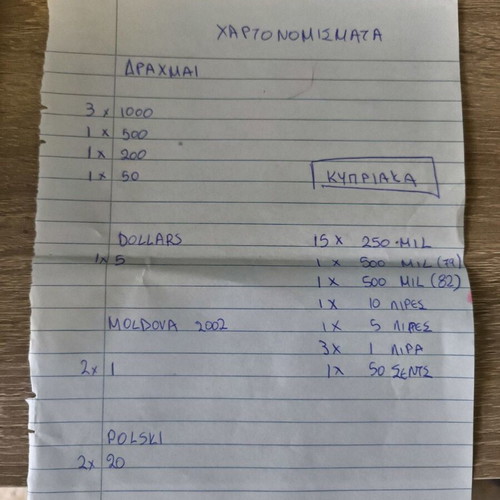 ΧΑΡΤΟΝΟΜΙΣΜΑΤΑ
ΔΡΑΧΜΑΙ
3 x 1000
1 x 500
1 x 200
1 x 50
ΚΥΠΡΙΑΚΑ
DOLLARS
1x 5
15 x 250 MIL
1 x 500 MIL (79)
1 x 500 MIL (82)
1 x 10 ΛΙΡΕΣ
1 x 5 ΛΙΡΕΣ
3x 1 ΛΙΡΑ
1x 50 ΣΕΝΤΣ
MOLDOVA 2002
2x 1
POLSKI
2x 20